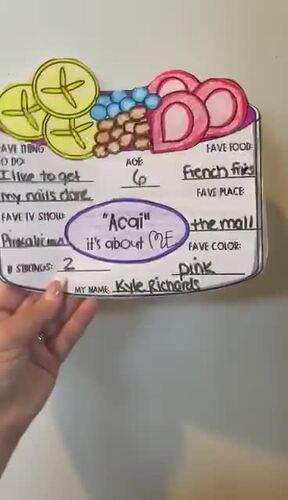 AVE THING
O DO:
I live to get
my nails done
AGE:
6
FAVE FOOD:
French fries
FAVE PLACE:
the mall
FAVE TV SHOW:
"Acai"
it's about ME
FAVE COLOR:
pink
# SIBLINGS: 2
MY NAME: Kyle Richards